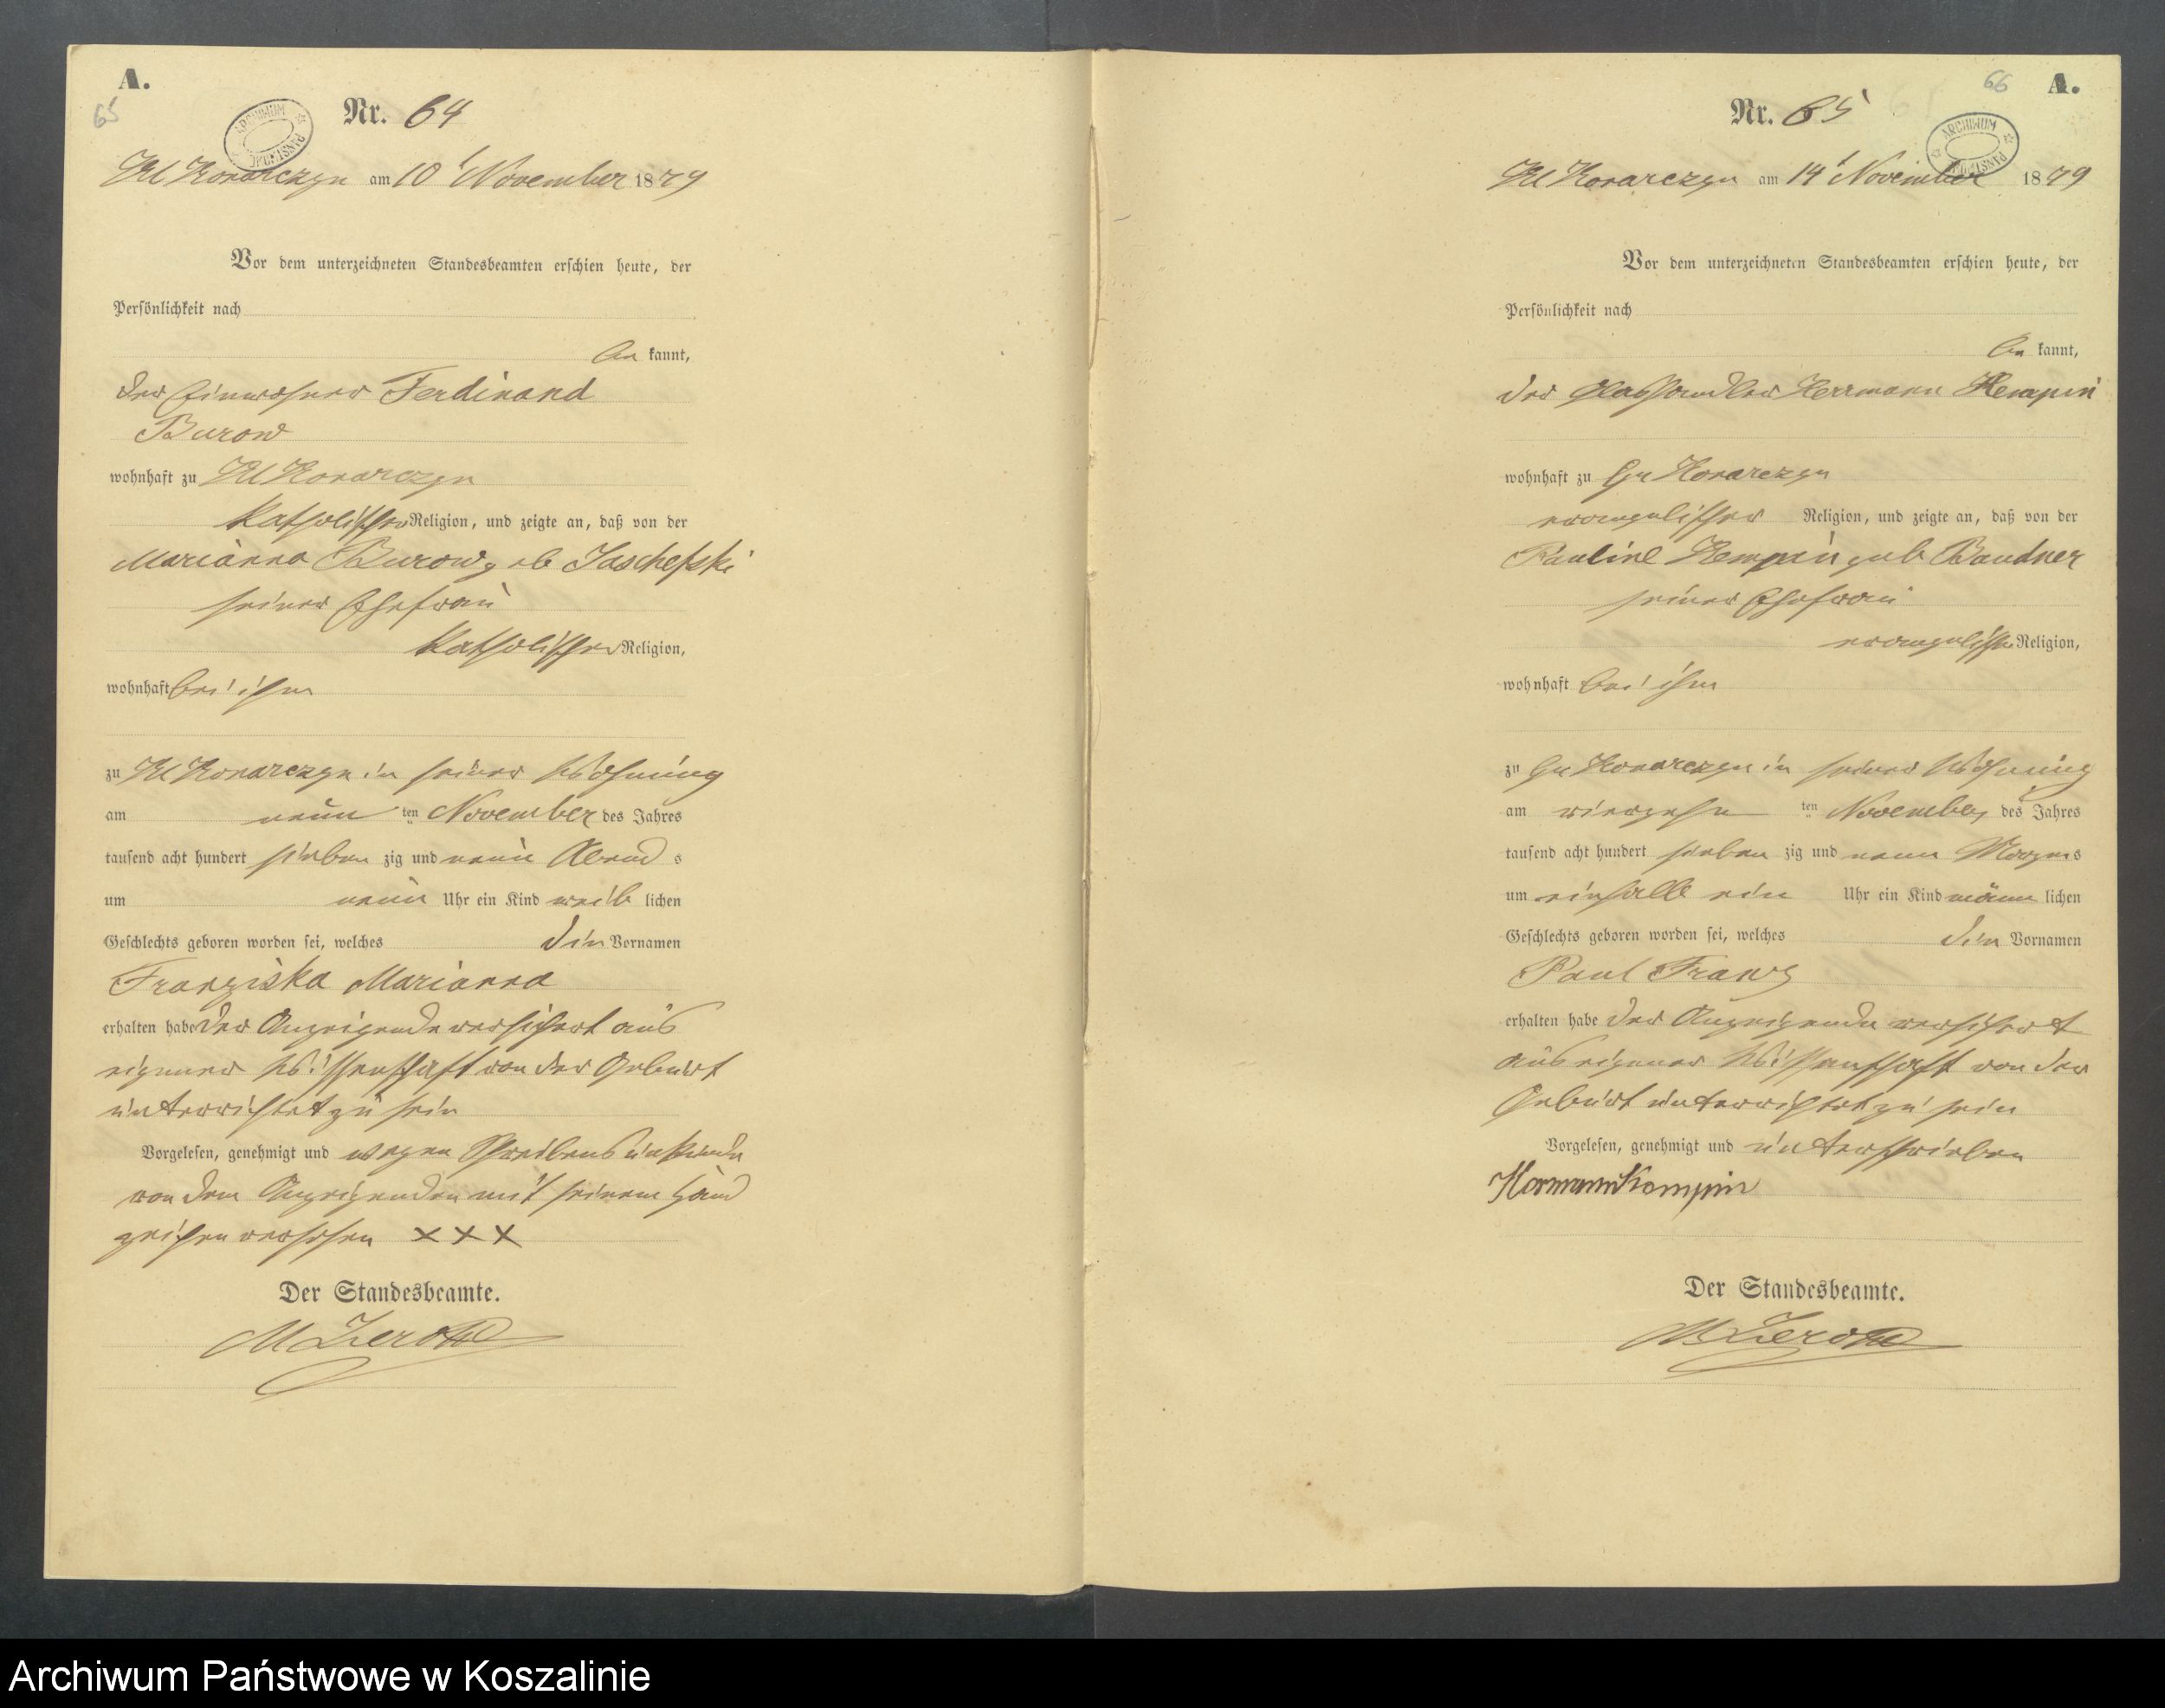 A.
65
Nr. 64
ARCHIWUM PAŃSTWOWE
Kl Konarczyn am 10t November 1879
Vor dem unterzeichneten Standesbeamten erschien heute, der
Persönlichkeit nach
be kannt,
der Einwohner Ferdinand
Burow
wohnhaft zu Kl Konarczyn
katholischer Religion, und zeigte an, daß von der
Marianna Burow geb Jaschefski
seiner Ehefrau
katholischer Religion,
wohnhaft bei ihm
zu Kl Konarczyn in seiner Wohnung
am neun ten November des Jahres
tausend acht hundert sieben zig und neun Abend s
um neun Uhr ein Kind weib lichen
Geschlechts geboren worden sei, welches die Vornamen
Franziska Marianna
erhalten habe der Anzeigende versichert aus
eigener Wissenschaft von der Geburt
unterrichtet zu sein
Vorgelesen, genehmigt und wegen Schreibensunkunde
von dem Anzeigenden mit seinem Hand
zeichen versehen XXX
Der Standesbeamte.
66
A.
Nr. 65
ARCHIWUM PAŃSTWOWE
Kl Konarczyn am 14t November 1879
Vor dem unterzeichneten Standesbeamten erschien heute, der
Persönlichkeit nach
be kannt,
der Glashandler Herrmann Kempin
wohnhaft zu Gr Konarczyn
evangelischer Religion, und zeigte an, daß von der
Pauline Kempin geb Bandner
seiner Ehefrau
evangelischer Religion,
wohnhaft bei ihm
zu Gr Konarczyn in seiner Wohnung
am vierzehn ten November des Jahres
tausend acht hundert sieben zig und neun Morgens
um einhalb ein Uhr ein Kind männ lichen
Geschlechts geboren worden sei, welches die Vornamen
Paul Franz
erhalten habe der Anzeigende versichert
aus eigener Wissenschaft von der
Geburt unterrichtet zu sein
Vorgelesen, genehmigt und unterschrieben
Hermann Kempin
Der Standesbeamte.
Archiwum Państwowe w Koszalinie